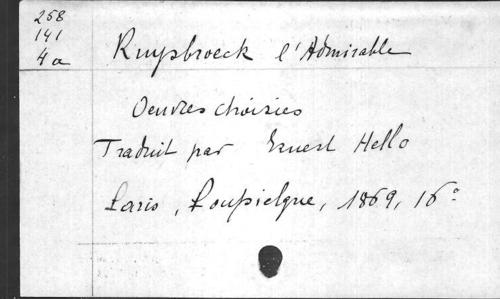 258
141
4a
Ruysbroeck l'Admirable
Oeuvres choisies
Traduit par Ernest Hello
Paris, Poussielgue, 1869, 16°